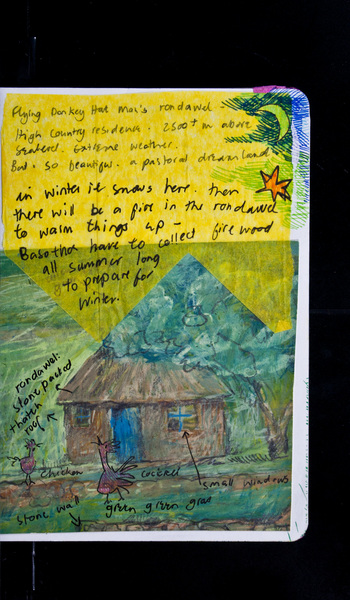 Flying Donkey Hat Man's rondawel -
High Country residence. 2500+ m above
sealevel. Extreme weather.
But. so beautiful. a pastoral dreamland.
in winter it snows here. then
there will be a fire in the rondawel
to warm things up -
Basotho have to collect firewood
all summer long
to prepare for
winter.
rondawel:
stone packed
thatch
roof
chicken
cockrel
small windows
stone wall
green green gras